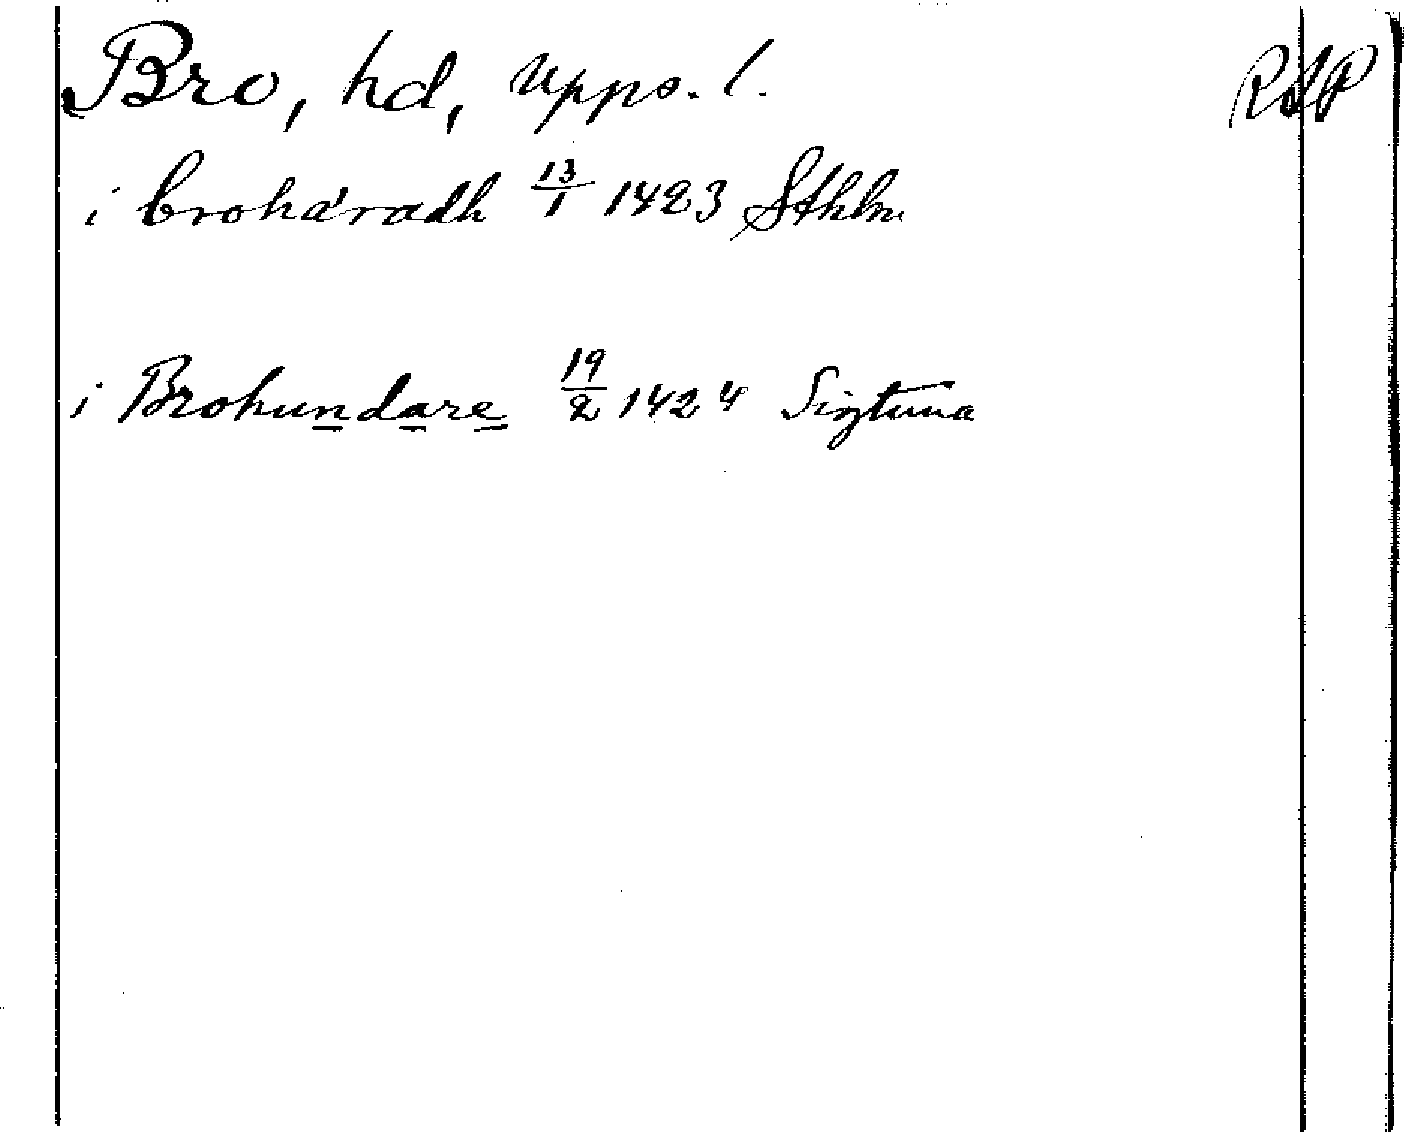 Bro, hd, Upps. l. RAP
i broháradh 13/1 1423 Sthlm.
i Brohundare 19/2 1424 Sigtuna